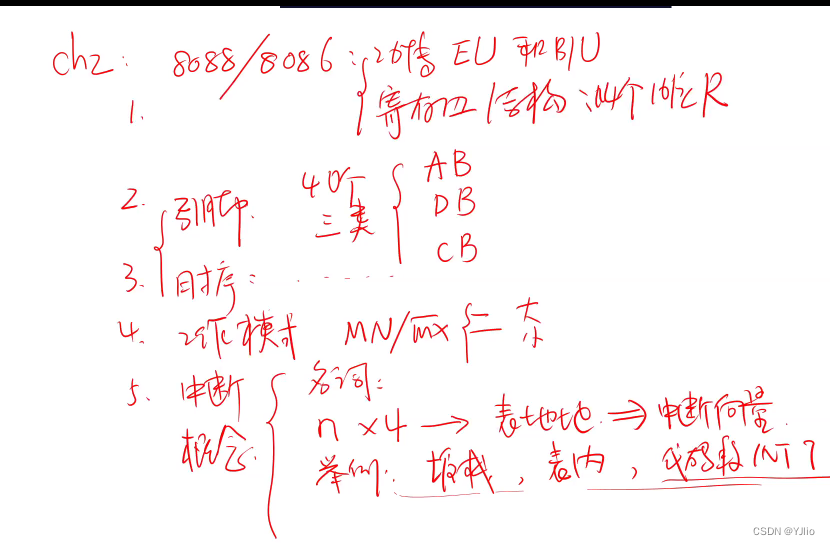 ch2: 8088/8086: 功能 EU 和 BIU
1. 寄存器结构: 14个16位R
2. 引脚. 40个 AB
三类 DB
CB
3. 时序: ......
4. 工作模式 MN/MX 二 大 小
5. 中断 名词:
概念. n×4 → 表地址 ⇒ 中断向量.
举例: 堆栈, 表内, 代码段 INT 7
CSDN @YJlio